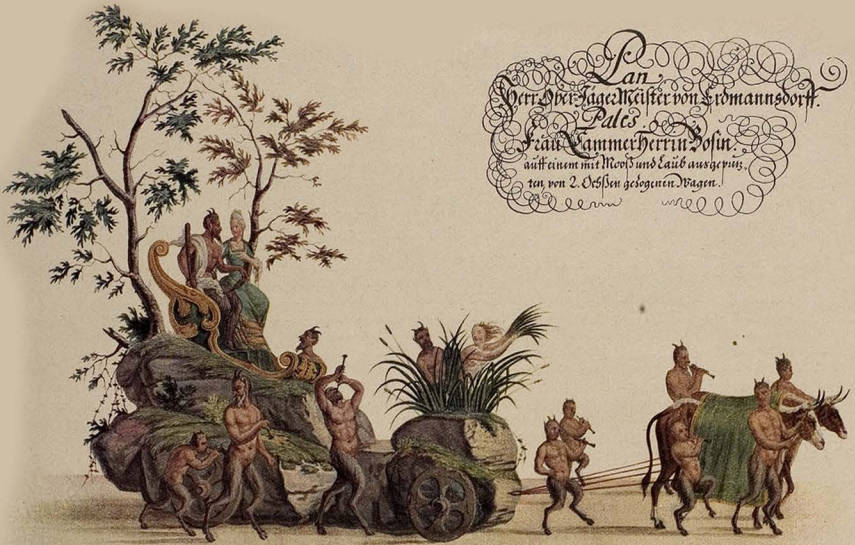 Pan
Herr Ober JägerMeister von Erdmannsdorff.
Pales.
Frau Cammerherrin Bosin.
auff einem mit Mooß und Laub ausgeputz„
ten, von 2. Ochßen gezogenen Wagen.